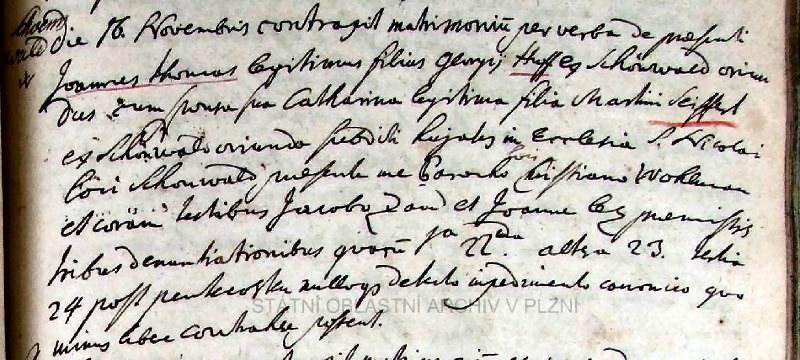 Schönwald
die 16 Novembris contraxit matrimoniũ per verba de præsenti
Joannes Thomas legitimus filius Georgij Huff ex Schönwald oriun
dus cum sponsa sua Catharina legitima filia Martini Seiffert
ex Schönwald oriunda subditi hujates in Ecclesia S. Nicolai
loci Schonwald præsente me Parocho Christiano
et corãm testibus Jacobo et Joanne præmissis
tribus denuntiationibus quarũ 1a 22da altera 23. tertia
24 post pentecosten nulloq detecto impedimento canonico quo
minus libere contrahere possent.
STÁTNÍ OBLASTNÍ ARCHIV V PLZNI